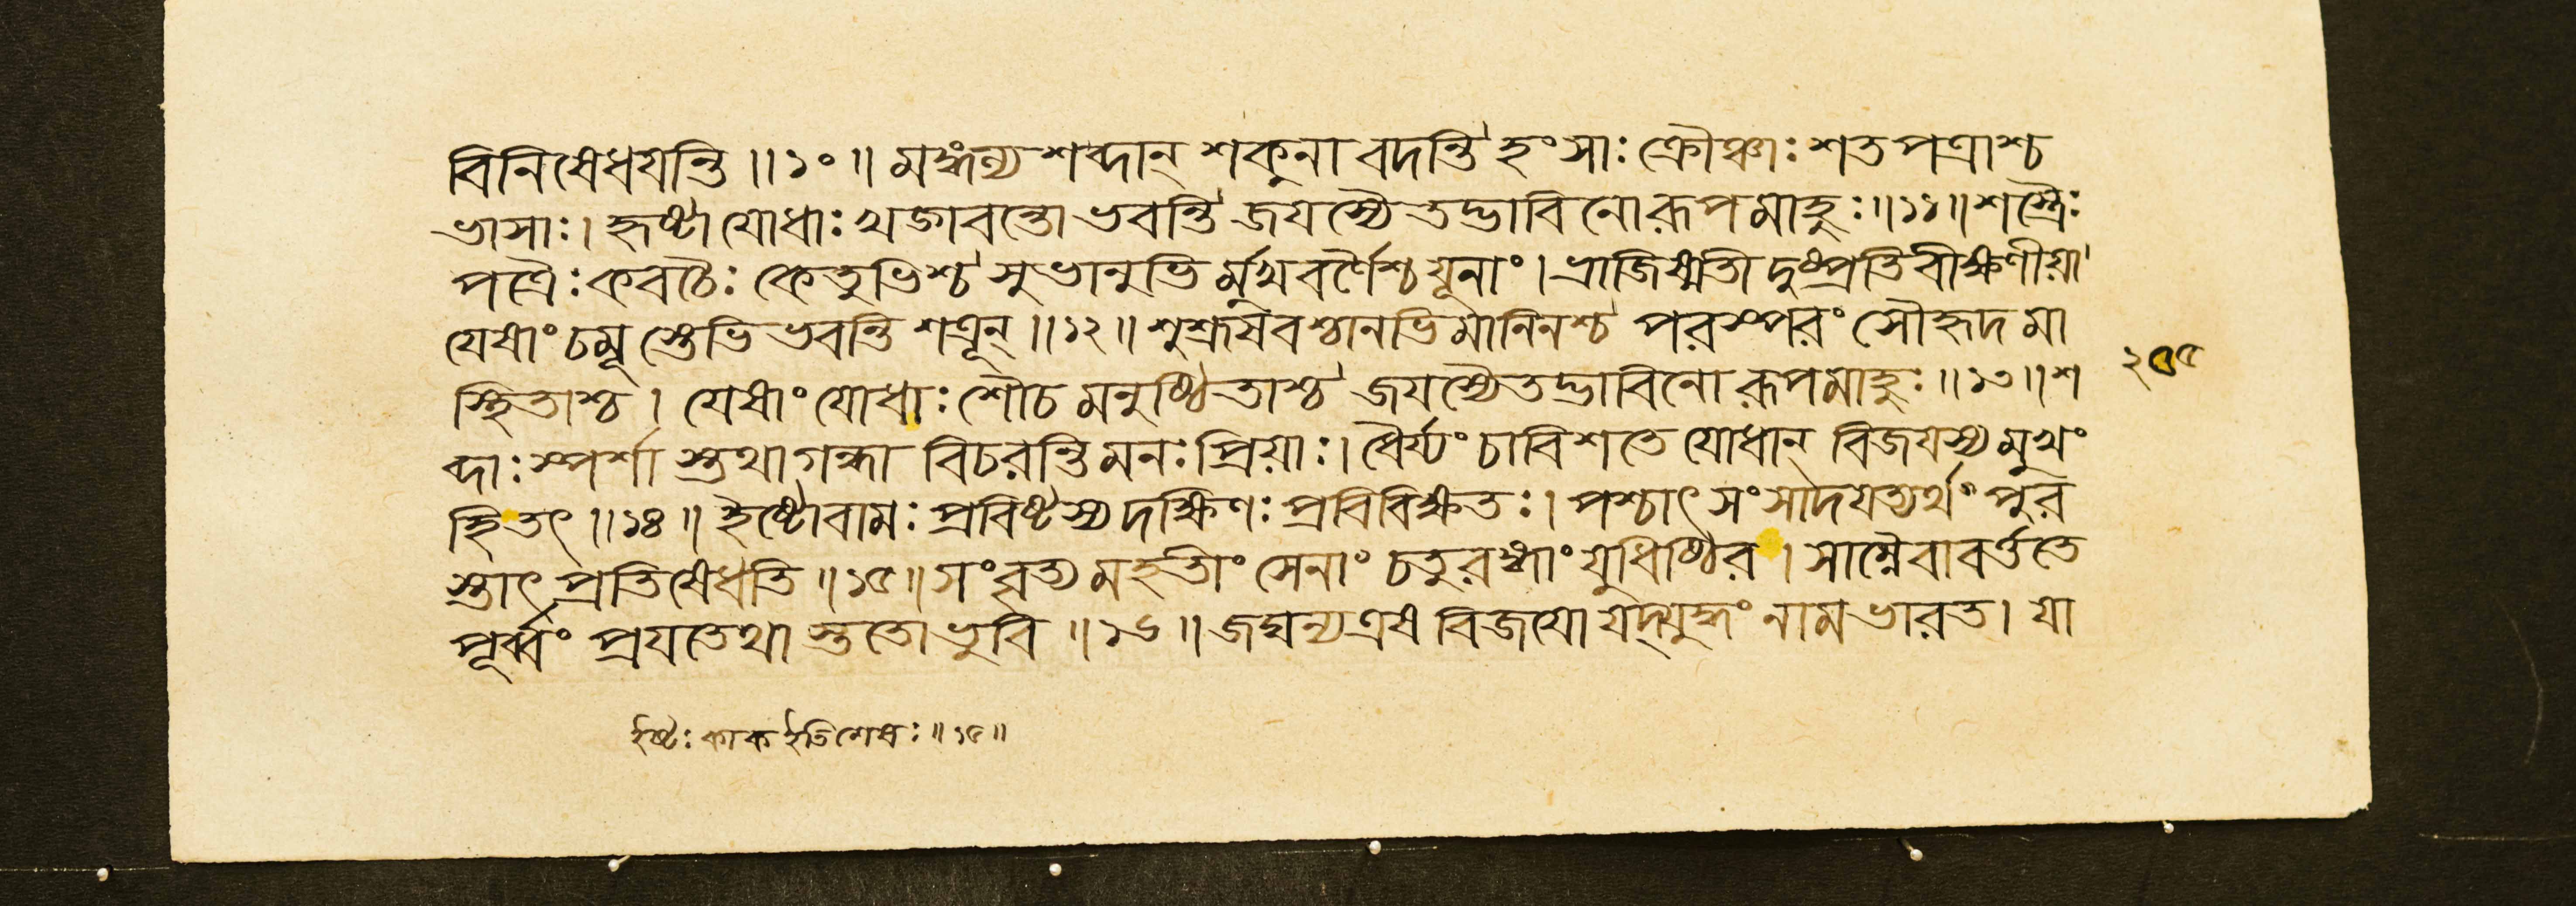 বিনিষেধযন্তি ॥১০॥ মঙ্গল্য শব্দান্ শকুনা বদন্তি হংসাঃ ক্রৌঞ্চাঃ শতপত্রাশ্চ
ভাসাঃ। হৃষ্টা যোধাঃ খঞ্জাবন্তো ভবন্তি জযস্যৈতদ্ভাবিনো রূপমাহুঃ॥১১॥ শস্ত্রৈঃ
পত্রৈঃ কবচৈঃ কেতুভিশ্চ সুভানুভি র্মুখবর্ণৈশ্চ যূনাং। ভ্রাজিষ্মতী দুষ্প্রতিবীক্ষণীয়া
যেষাং চমূ স্তেভি ভবন্তি শত্রূন্ ॥১২॥ শুশ্রূষবশ্চানভিমানিনশ্চ পরস্পরং সৌহৃদ মা
স্থিতাশ্চ। যেষাং যোধাঃ শৌচ মনুষ্ঠিতাশ্চ জযস্যৈতদ্ভাবিনো রূপমাহুঃ॥১৩॥ শ
ব্দাঃ স্পর্শা স্তথা গন্ধা বিচরন্তি মনঃপ্রিয়াঃ। ধৈর্য্যং চাবিশতে যোধান্ বিজযস্য মুখং
হি তৎ ॥১৪॥ ইষ্টো বামঃ প্রবিষ্টস্য দক্ষিণঃ প্রবিবিক্ষতঃ। পশ্চাৎ সংসাদযত্যর্থং পুর
স্তাৎ প্রতিষেধতি ॥১৫॥ সংবৃত্য মহতীং সেনাং চতুরঙ্গাং যুধিষ্ঠির। সাম্নৈবাবর্ত্ততে
পূর্ব্বং প্রযতেথা স্ততো ভুবি ॥১৬॥ জঘন্য এষ বিজযো যদ্যুদ্ধং নাম ভারত। যা
২০৫
ইষ্টঃ কাক ইতি শেষঃ॥১৫॥